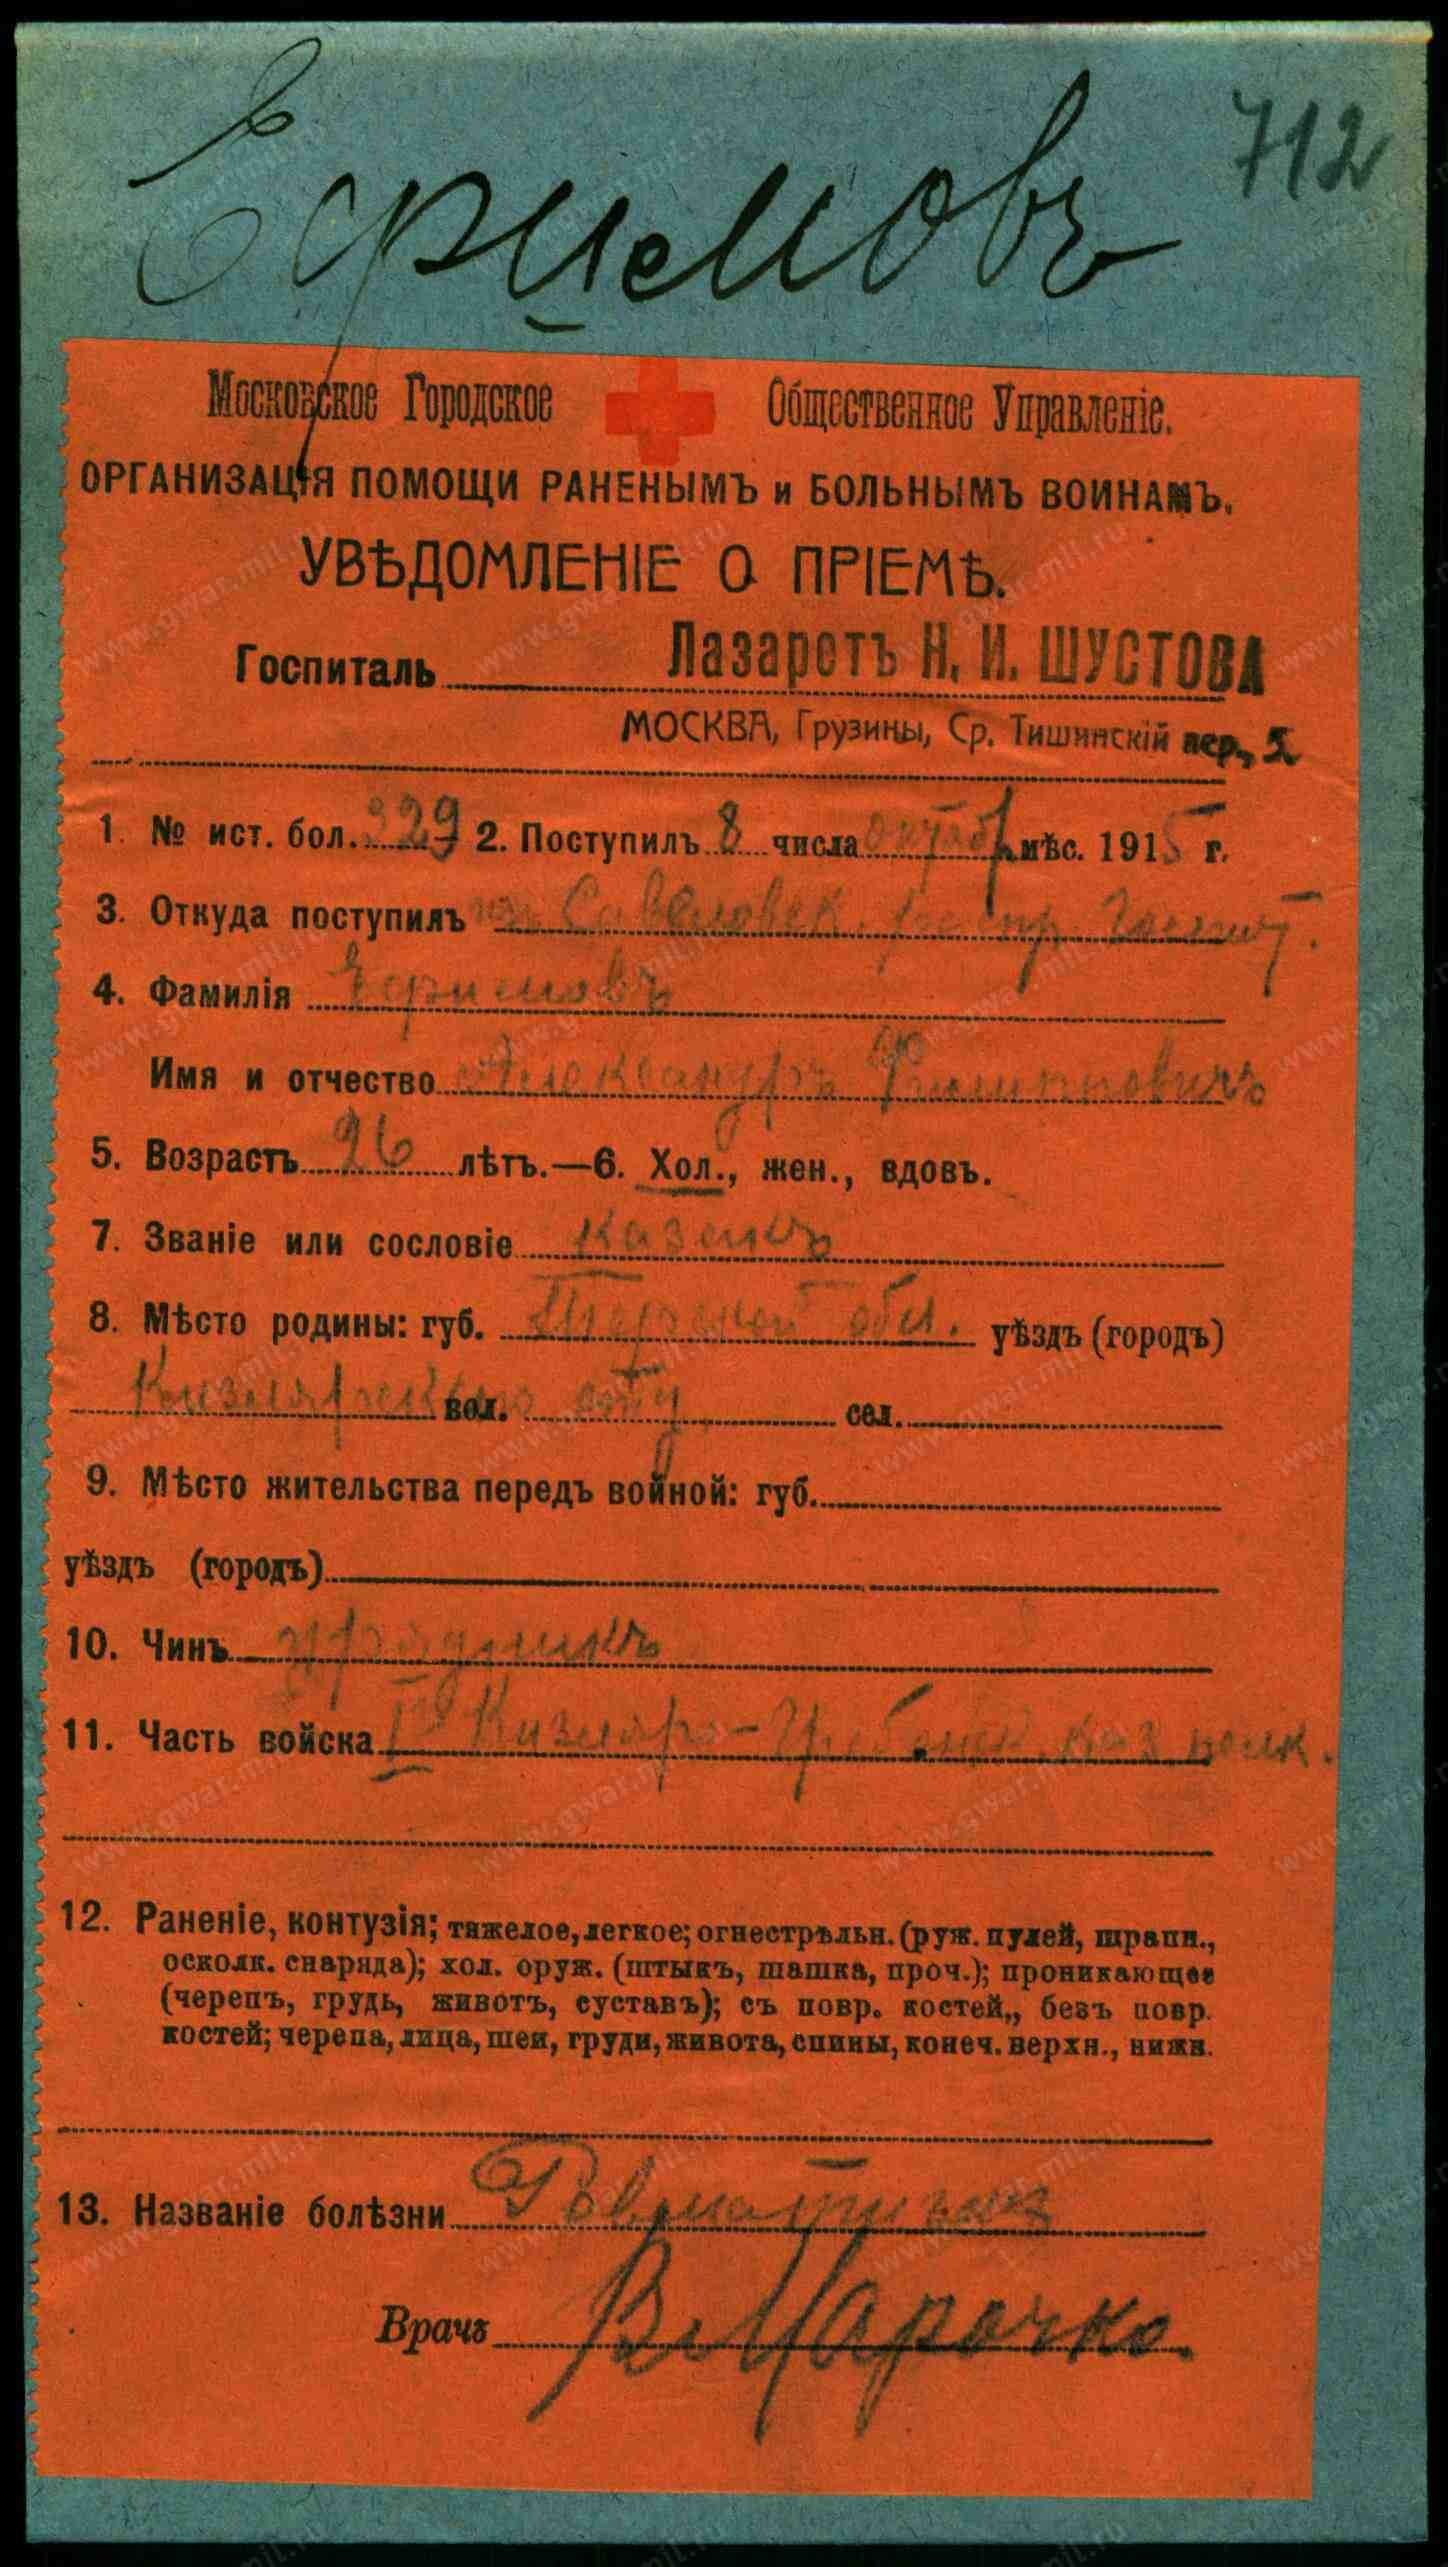 712
Московское Городское Общественное Управленіе.
ОРГАНИЗАЦІЯ ПОМОЩИ РАНЕНЫМЪ и БОЛЬНЫМЪ ВОИНАМЪ.
УВѢДОМЛЕНІЕ О ПРІЕМѢ.
Госпиталь Лазаретъ Н. И. ШУСТОВА
МОСКВА, Грузины, Ср. Тишинскій пер., 5.
1. № ист. бол. 329 2. Поступилъ 8 числа октябр мѣс. 1915 г.
3. Откуда поступилъ изъ Савеловск. распр. Госпит.
4. Фамилія
Имя и отчество Александръ Филипповичъ
5. Возрастъ 26 лѣтъ.—6. Хол., жен., вдовъ.
7. Званіе или сословіе казакъ
8. Мѣсто родины: губ. Терской обл. уѣздъ (городъ)
Кизлярскаго вол. отд. сел.
9. Мѣсто жительства передъ войной: губ.
уѣздъ (городъ)
10. Чинъ урядникъ
11. Часть войска I Кизляро-Гребенск. каз полк.
12. Раненіе, контузія; тяжелое, легкое; огнестрѣльн. (руж. пулей, шрапн.,
осколк. снаряда); хол. оруж. (штыкъ, шашка, проч.); проникающее
(черепъ, грудь, животъ, суставъ); съ повр. костей,, безъ повр.
костей; черепа, лица, шеи, груди, живота, спины, конеч. верхн., нижн.
13. Названіе болѣзни Ревматизмъ
Врачъ